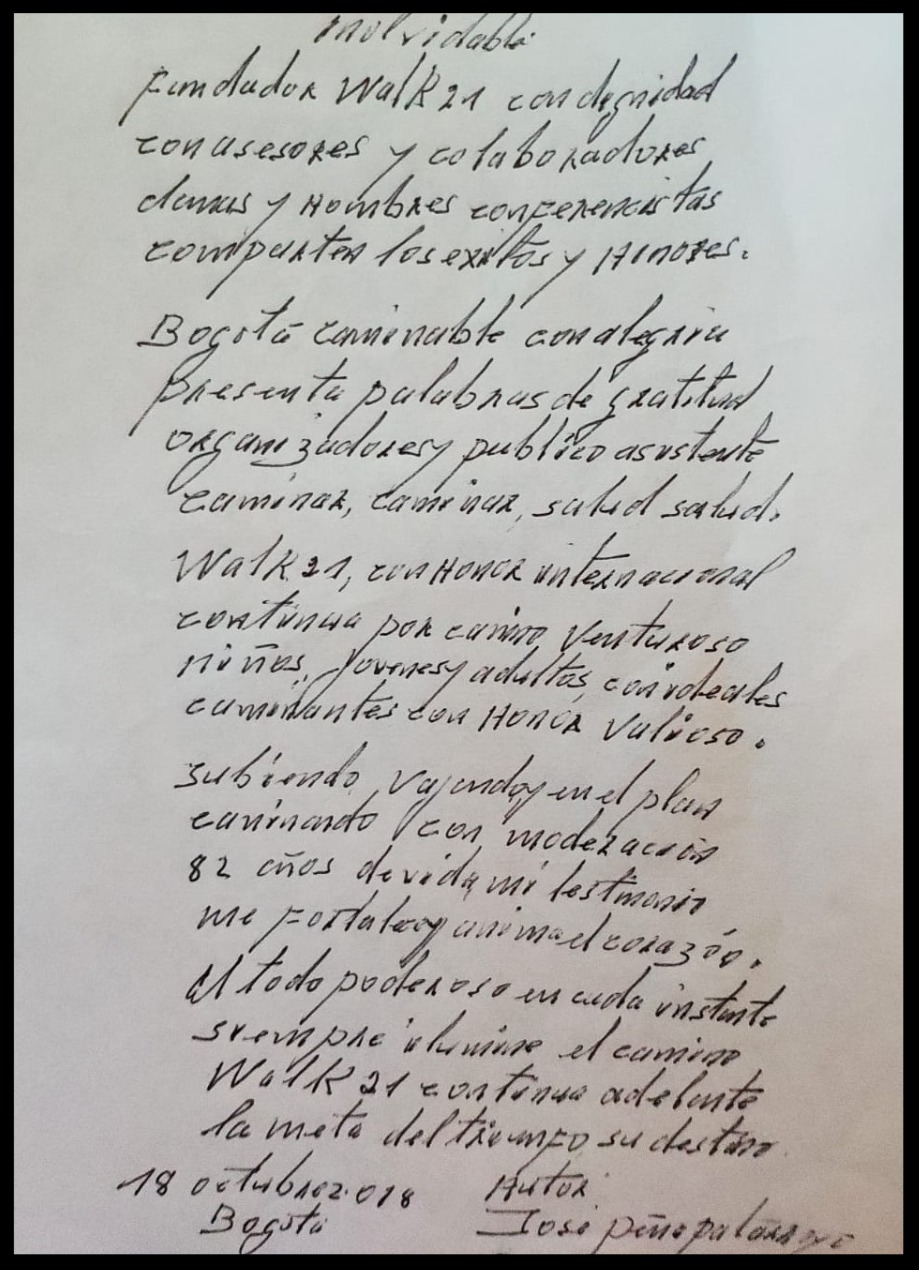 inolvidable
Fundador Walk 21 con dignidad
con asesores y colaboradores
damas y Hombres conferencistas
comparten los exitos y Honores.
Bogotá caminable con alegria
presenta palabras de gratitud
organizadores y publico asistente
caminar, caminar, salud salud.
Walk 21, con Honor internacional
continua por camino venturoso
niños, jovenes y adultos, con ideales
caminantes con Honor Valioso.
subiendo, vajando, y en el plan
caminando con moderación
82 años de vida, mi testimonio
me fortalece y anima el corazón.
El todo poderoso en cada instante
siempre ilumine el camino
Walk 21 continua adelante
la meta del triunfo, su destino.
18 octubre 2.018 Autor
Bogotá José